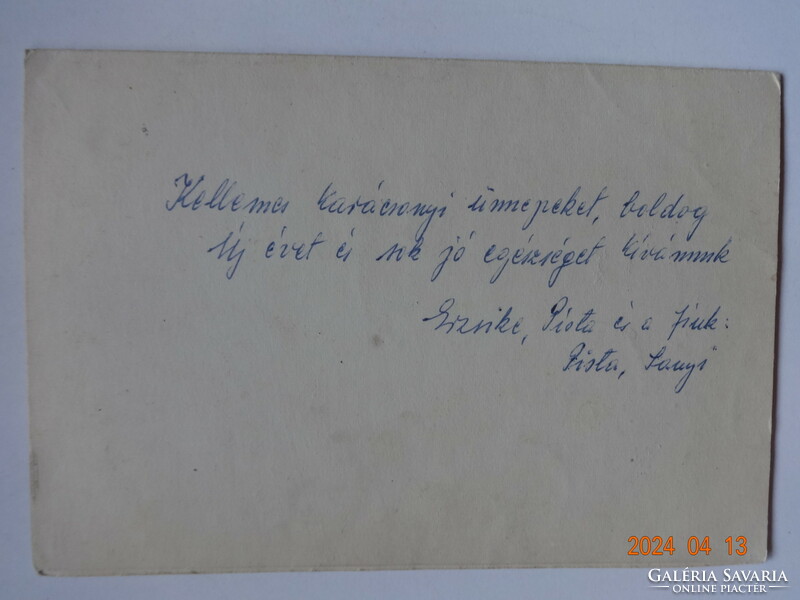 Kellemes Karácsonyi ünnepeket, boldog
Új évet és sok jó egészséget kívánunk
Erzsike, Pista és a fiuk:
Pista, Sanyi
2024 04 13
GALÉRIA SAVARIA
ONLINE PIACTÉR